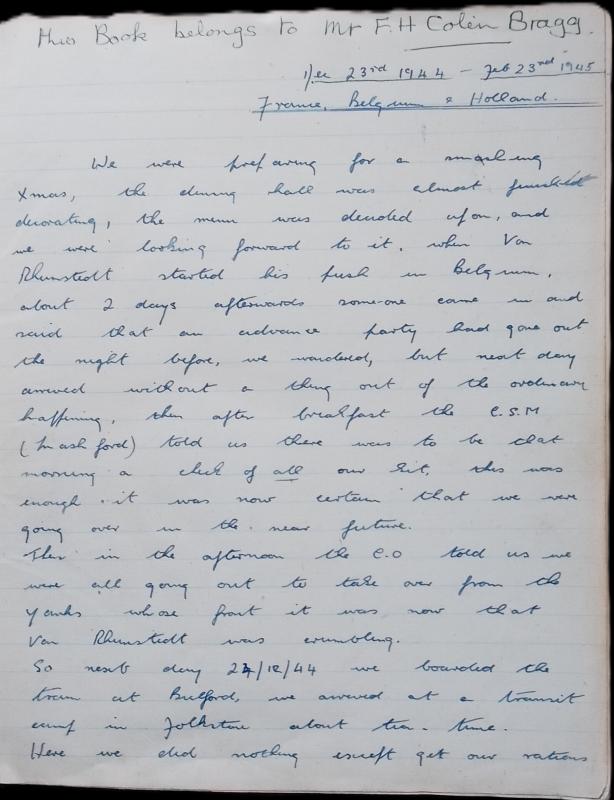 This Book belongs to Mr F.H Colin Bragg.
Dec 23rd 1944 - Feb 23rd 1945
France, Belgium & Holland.
We were preparing for a smashing
Xmas, the dining hall was almost finished
decorating, the menu was decided upon, and
we were looking forward to it, when Von
Rhunstedt started his push in Belgium,
about 2 days afterwards some-one came in and
said that an advance party had gone out
the night before, we wondered, but next day
arrived without a thing out of the ordinary
happening, then after breakfast the C.S.M
(Mashford) told us there was to be that
morning a check of all our kit, this was
enough it was now certain that we were
going over in the near future.
Then in the afternoon the C.O told us we
were all going out to take over from the
Yanks whose front it was now that
Von Rhunstedt was crumbling.
So next day 24/12/44 we boarded the
train at Bulford, we arrived at a transit
camp in Folkstone about tea-time.
Here we did nothing except get our rations